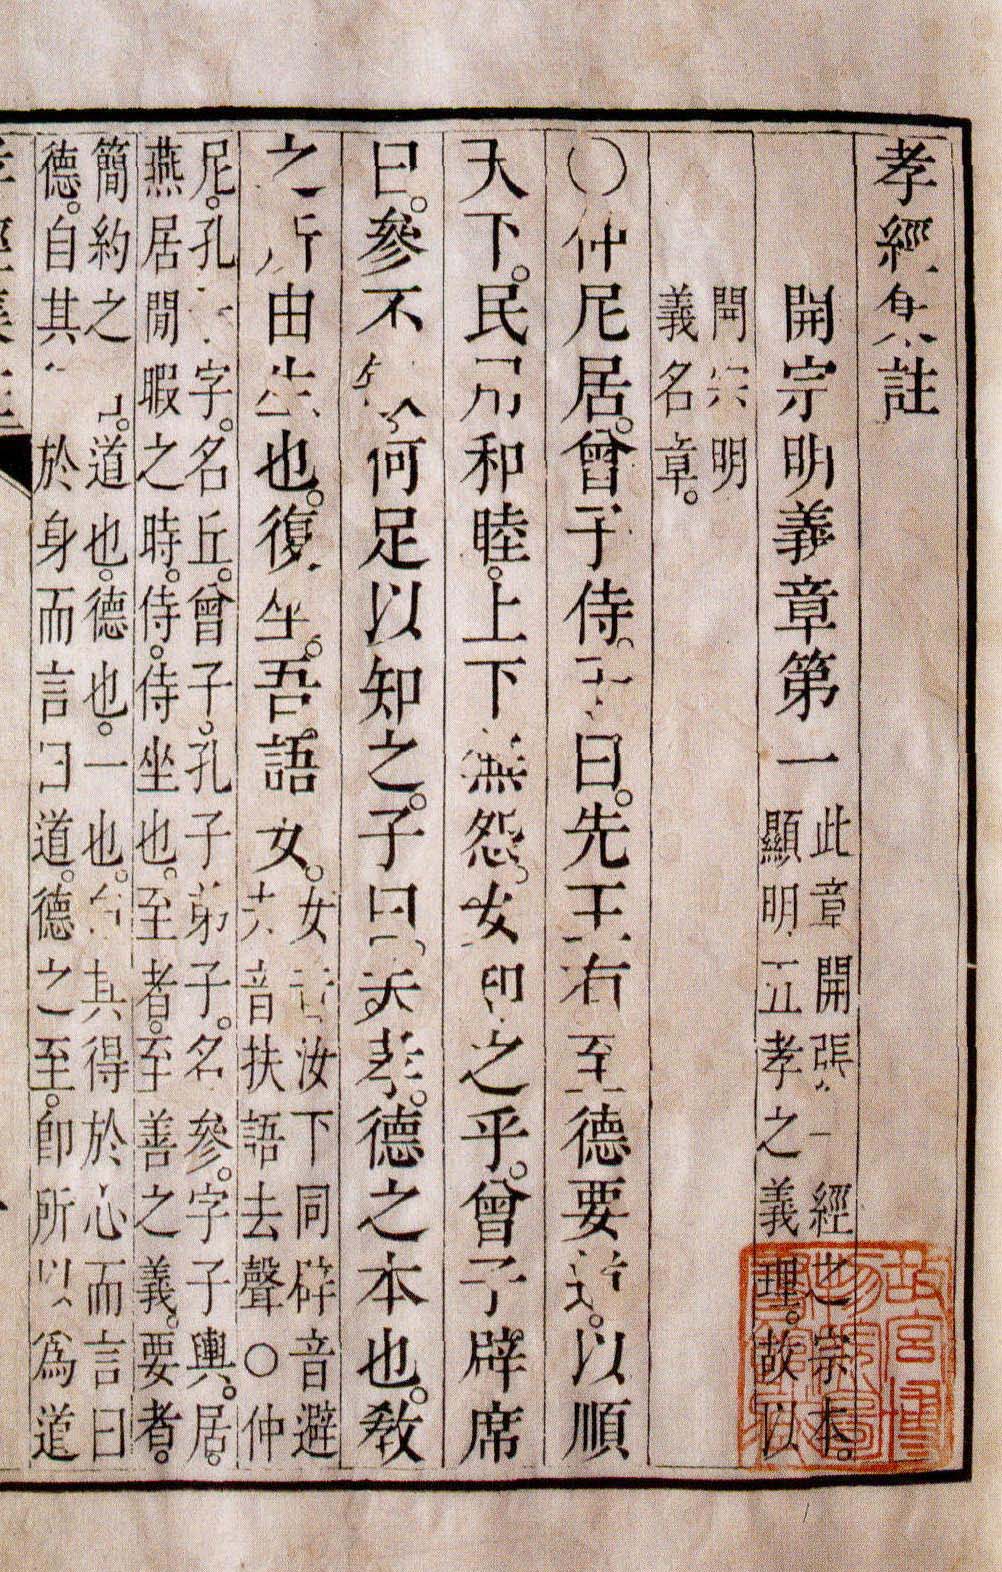 孝經集註
開宗明義章第一
此章開張一經之宗本。
顯明五孝之義理。故以
開宗明
義名章。
○仲尼居。曾子侍。子曰。先王有至德要道。以順
天下。民用和睦。上下無怨。女知之乎。曾子辟席
曰。參不敏。何足以知之。子曰。夫孝。德之本也。教
之所由生也。復坐。吾語女。
女音汝下同辟音避
夫音扶語去聲○仲
尼。孔子字。名丘。曾子。孔子弟子。名參。字子輿。居。
燕居閒暇之時。侍。侍坐也。至者。至善之義。要者。
簡約之名。道也。德也。一也。自其得於心而言曰
德。自其 於身而言曰道。德之至。卽所以爲道
故宮博物院